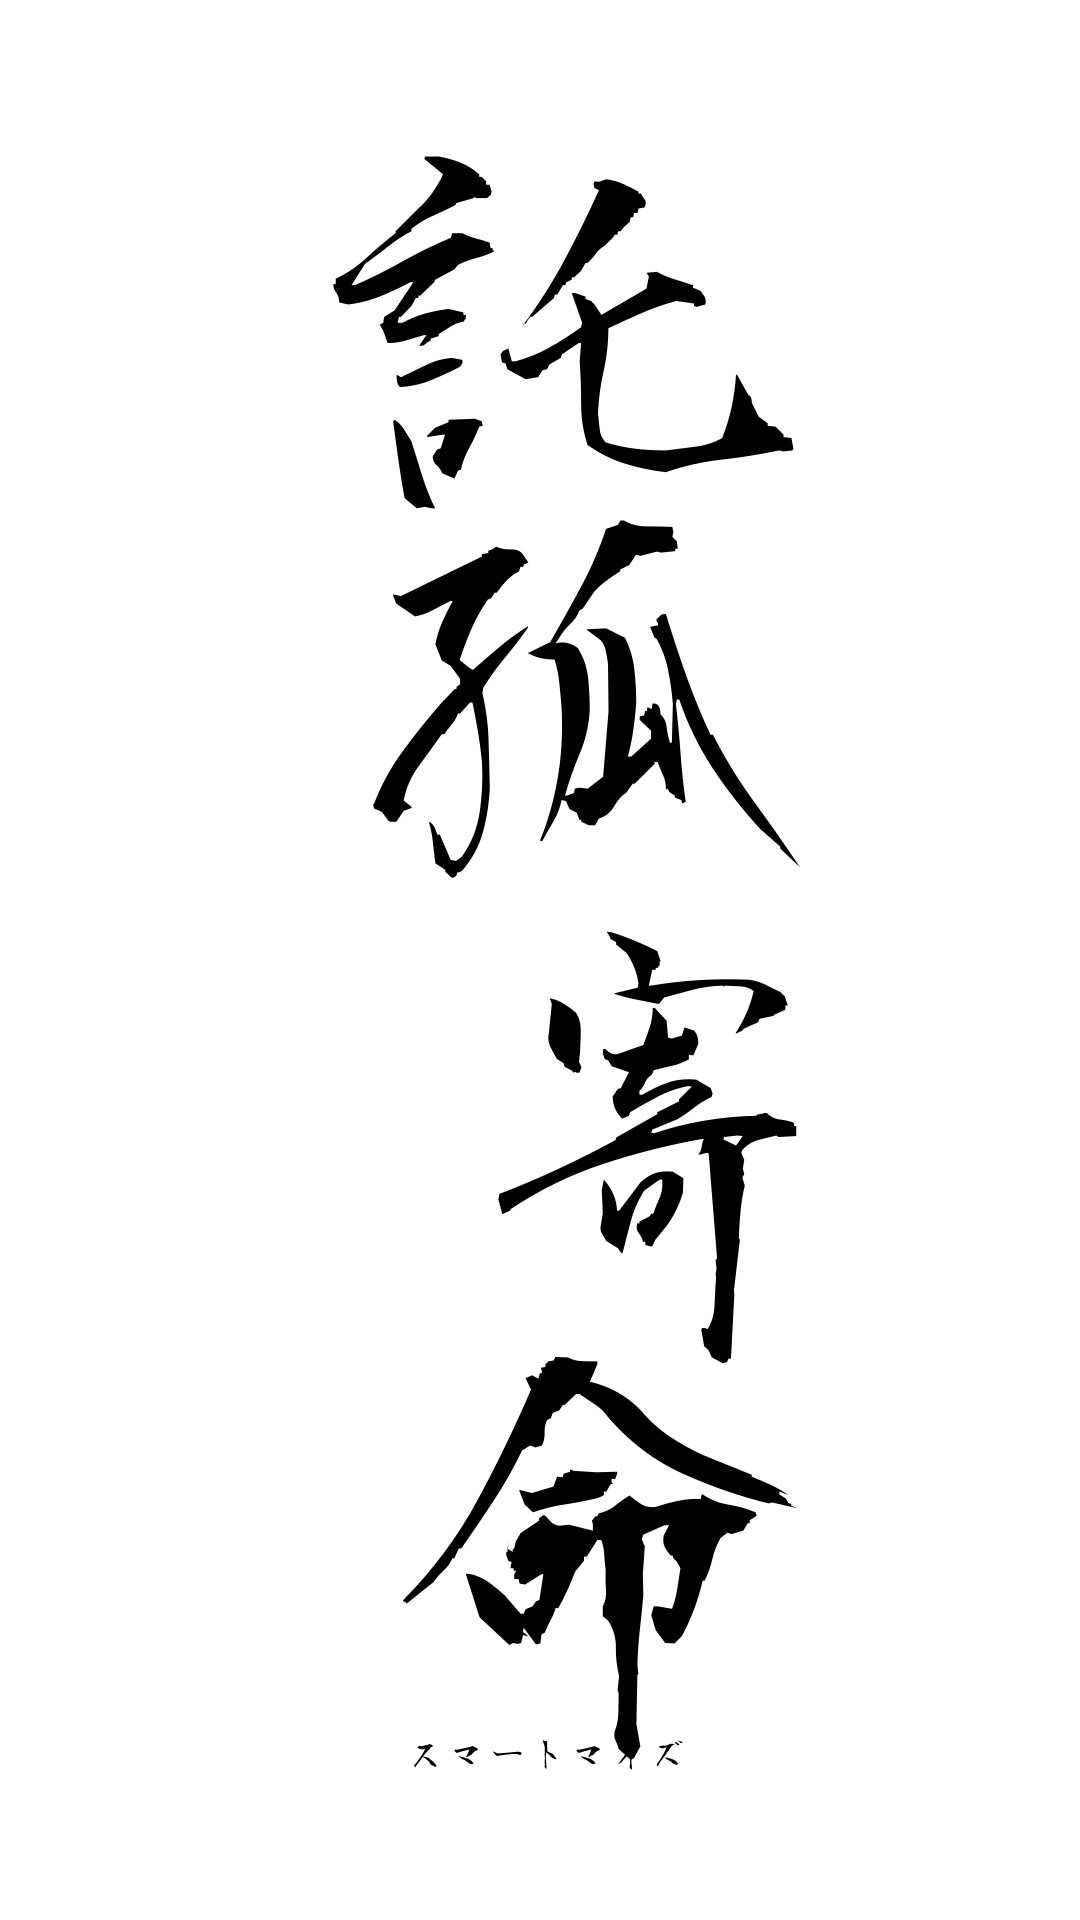 託孤寄命
スマートマイズ